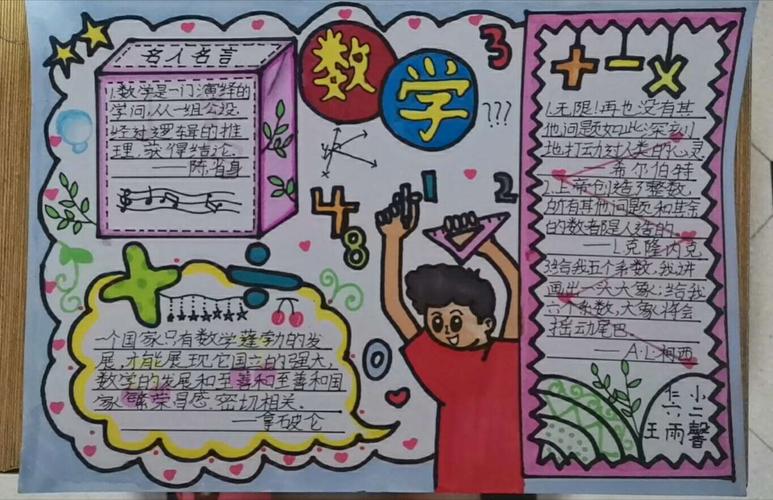 数学
名人名言
1.数学是一门演绎的
学问,从一组公设,
经过逻辑的推
理,获得结论.
——陈省身
3
???
1
2
4
8
0
一个国家只有数学蓬勃的发
展,才能展现它国立的强大,
数学的发展和至善和至善和国
家繁荣昌盛密切相关.
——拿破仑
+ - ×
1.无限!再也没有其
他问题如此深刻
地打动过人类的心灵
——希尔伯特
2.上帝创造了整数,
所有其他问题和其余
的数都是人造的.
——L.克隆内克
3.给我五个系数,我讲
画出一头大象;给我
六个系数,大象将会
摇动尾巴.
——A.L.柯西
六二
王雨馨